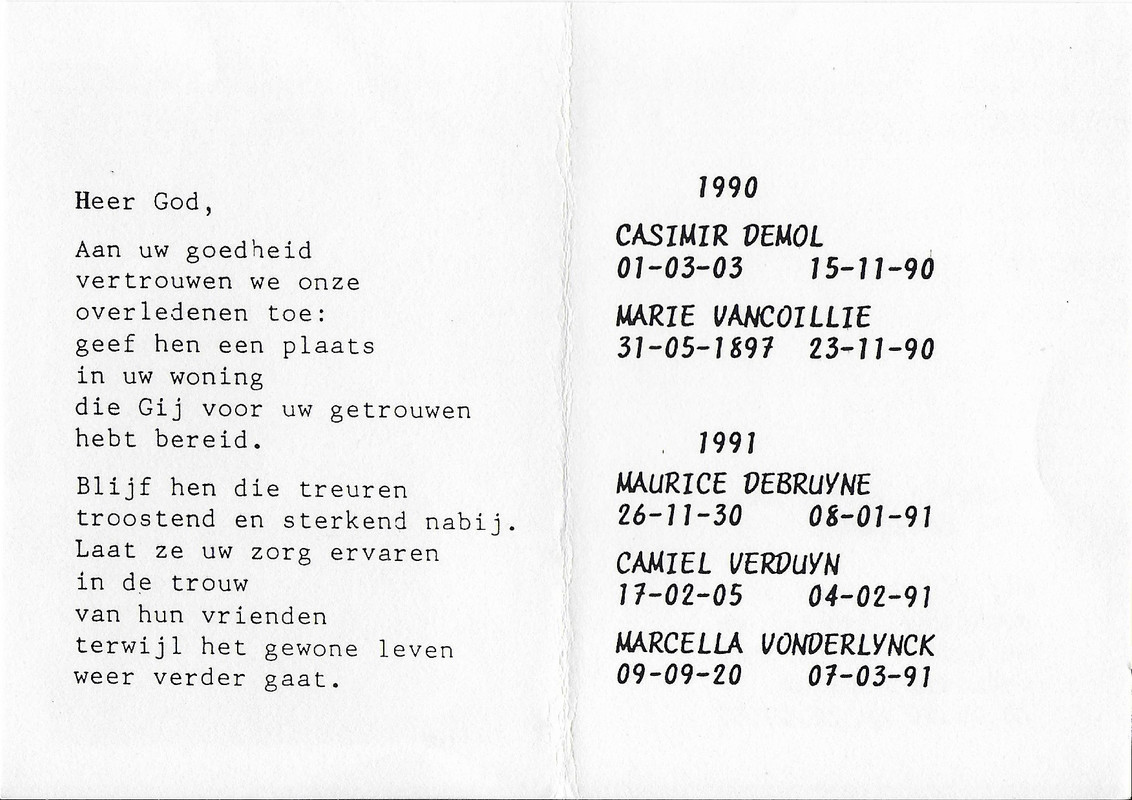 Heer God,
Aan uw goedheid
vertrouwen we onze
overledenen toe:
geef hen een plaats
in uw woning
die Gij voor uw getrouwen
hebt bereid.
Blijf hen die treuren
troostend en sterkend nabij.
Laat ze uw zorg ervaren
in de trouw
van hun vrienden
terwijl het gewone leven
weer verder gaat.
1990
CASIMIR DEMOL
01-03-03 15-11-90
MARIE VANCOILLIE
31-05-1897 23-11-90
1991
MAURICE DEBRUYNE
26-11-30 08-01-91
CAMIEL VERDUYN
17-02-05 04-02-91
MARCELLA VONDERLYNCK
09-09-20 07-03-91